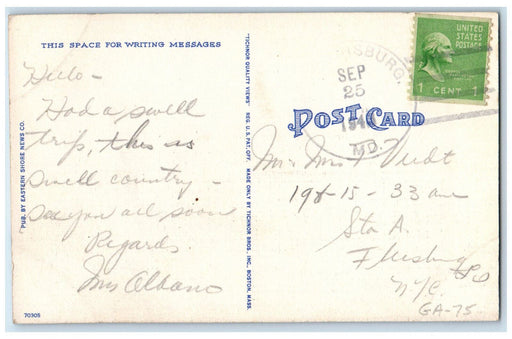 THIS SPACE FOR WRITING MESSAGES
Hello -
Had a swell
trip, this is
swell country -
see you all soon
Regards.
Mrs Albano
PUB. BY EASTERN SHORE NEWS CO.
70305
"TICHNOR QUALITY VIEWS" REG. U.S. PAT. OFF. MADE ONLY BY TICHNOR BROS., INC., BOSTON, MASS.
SBURG.
SEP
25
MD.
UNITED
STATES
POSTAGE
1 CENT 1
POST CARD
Mr Mrs Veidt
33 ave
Sta A.
N.Y.C.
GA-75